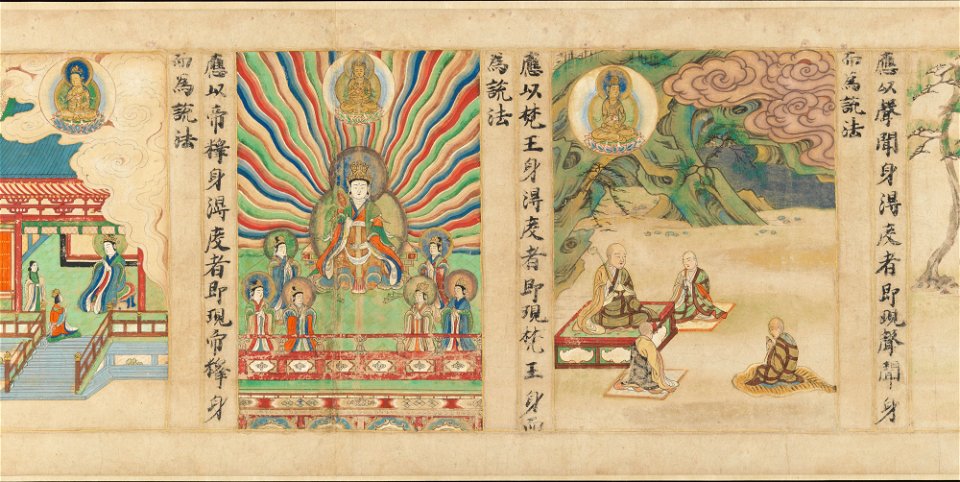 應以聲聞身淂度者即現聲聞身
而為說法
應以梵王身淂度者即現梵王身而
為說法
應以帝釋身淂度者即現帝釋身
而為說法